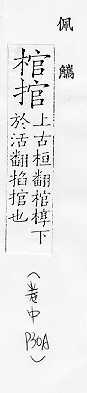 佩觿
棺捾
上古桓翻棺椁下
於活翻掐捾也
(卷中 P30A)